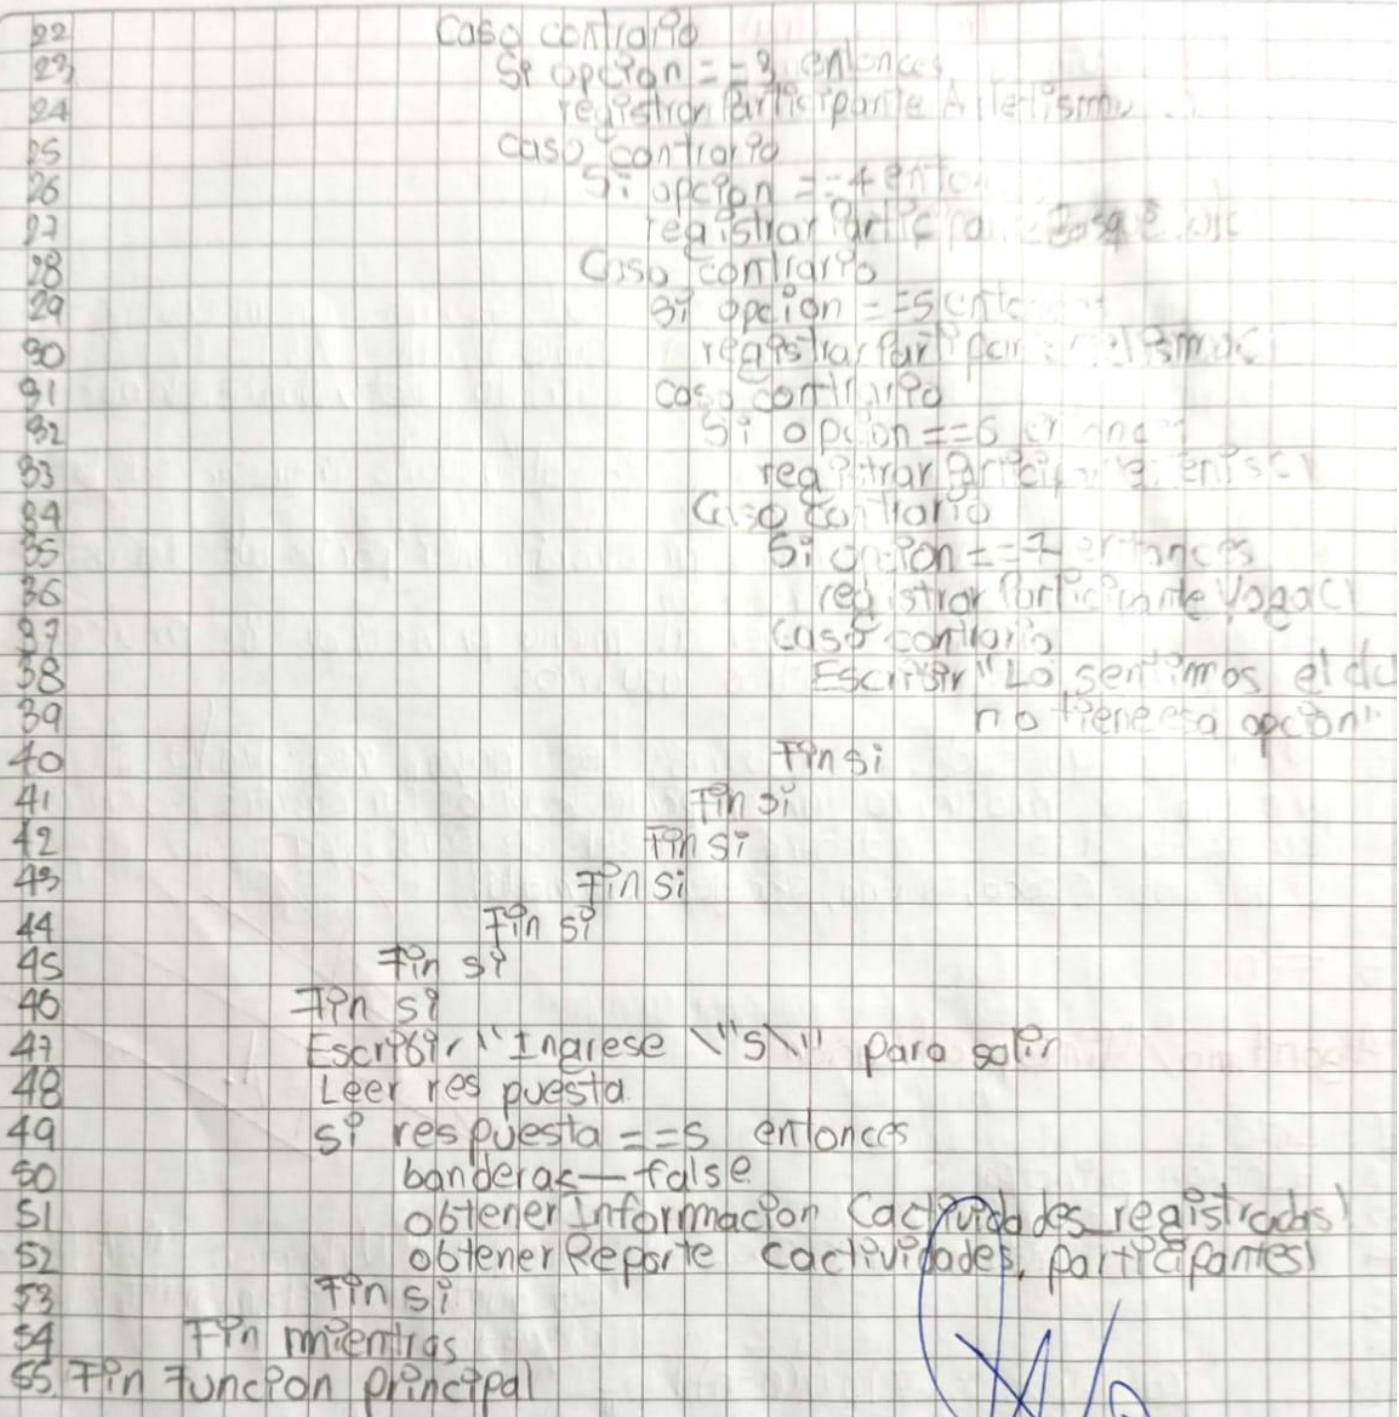 22 Caso contrario
23 Si opcion == 3 entonces
24 registrar Participante Atletismo
25 caso contrario
26 Si opcion == 4
27 registrar
28 Caso contrario
29 Si opcion == 5
30 registrar
31 caso contrario
32 Si opcion == 6
33 registrar
34 Caso contrario
35 Si opcion == 7 entonces
36 registrar Participante Yoga()
37 Caso contrario
38 Escribir "Lo sentimos el clu
39 no tiene esa opcion"
40 Fin si
41 Fin si
42 Fin si
43 Fin si
44 Fin si
45 Fin si
46 Fin si
47 Escribir "Ingrese \"s\" para salir
48 Leer respuesta
49 si respuesta == s entonces
50 bandera <— false
51 obtener Informacion (actividades registradas)
52 obtener Reporte (actividades, participantes)
53 Fin si
54 Fin mientras
55. Fin Funcion principal